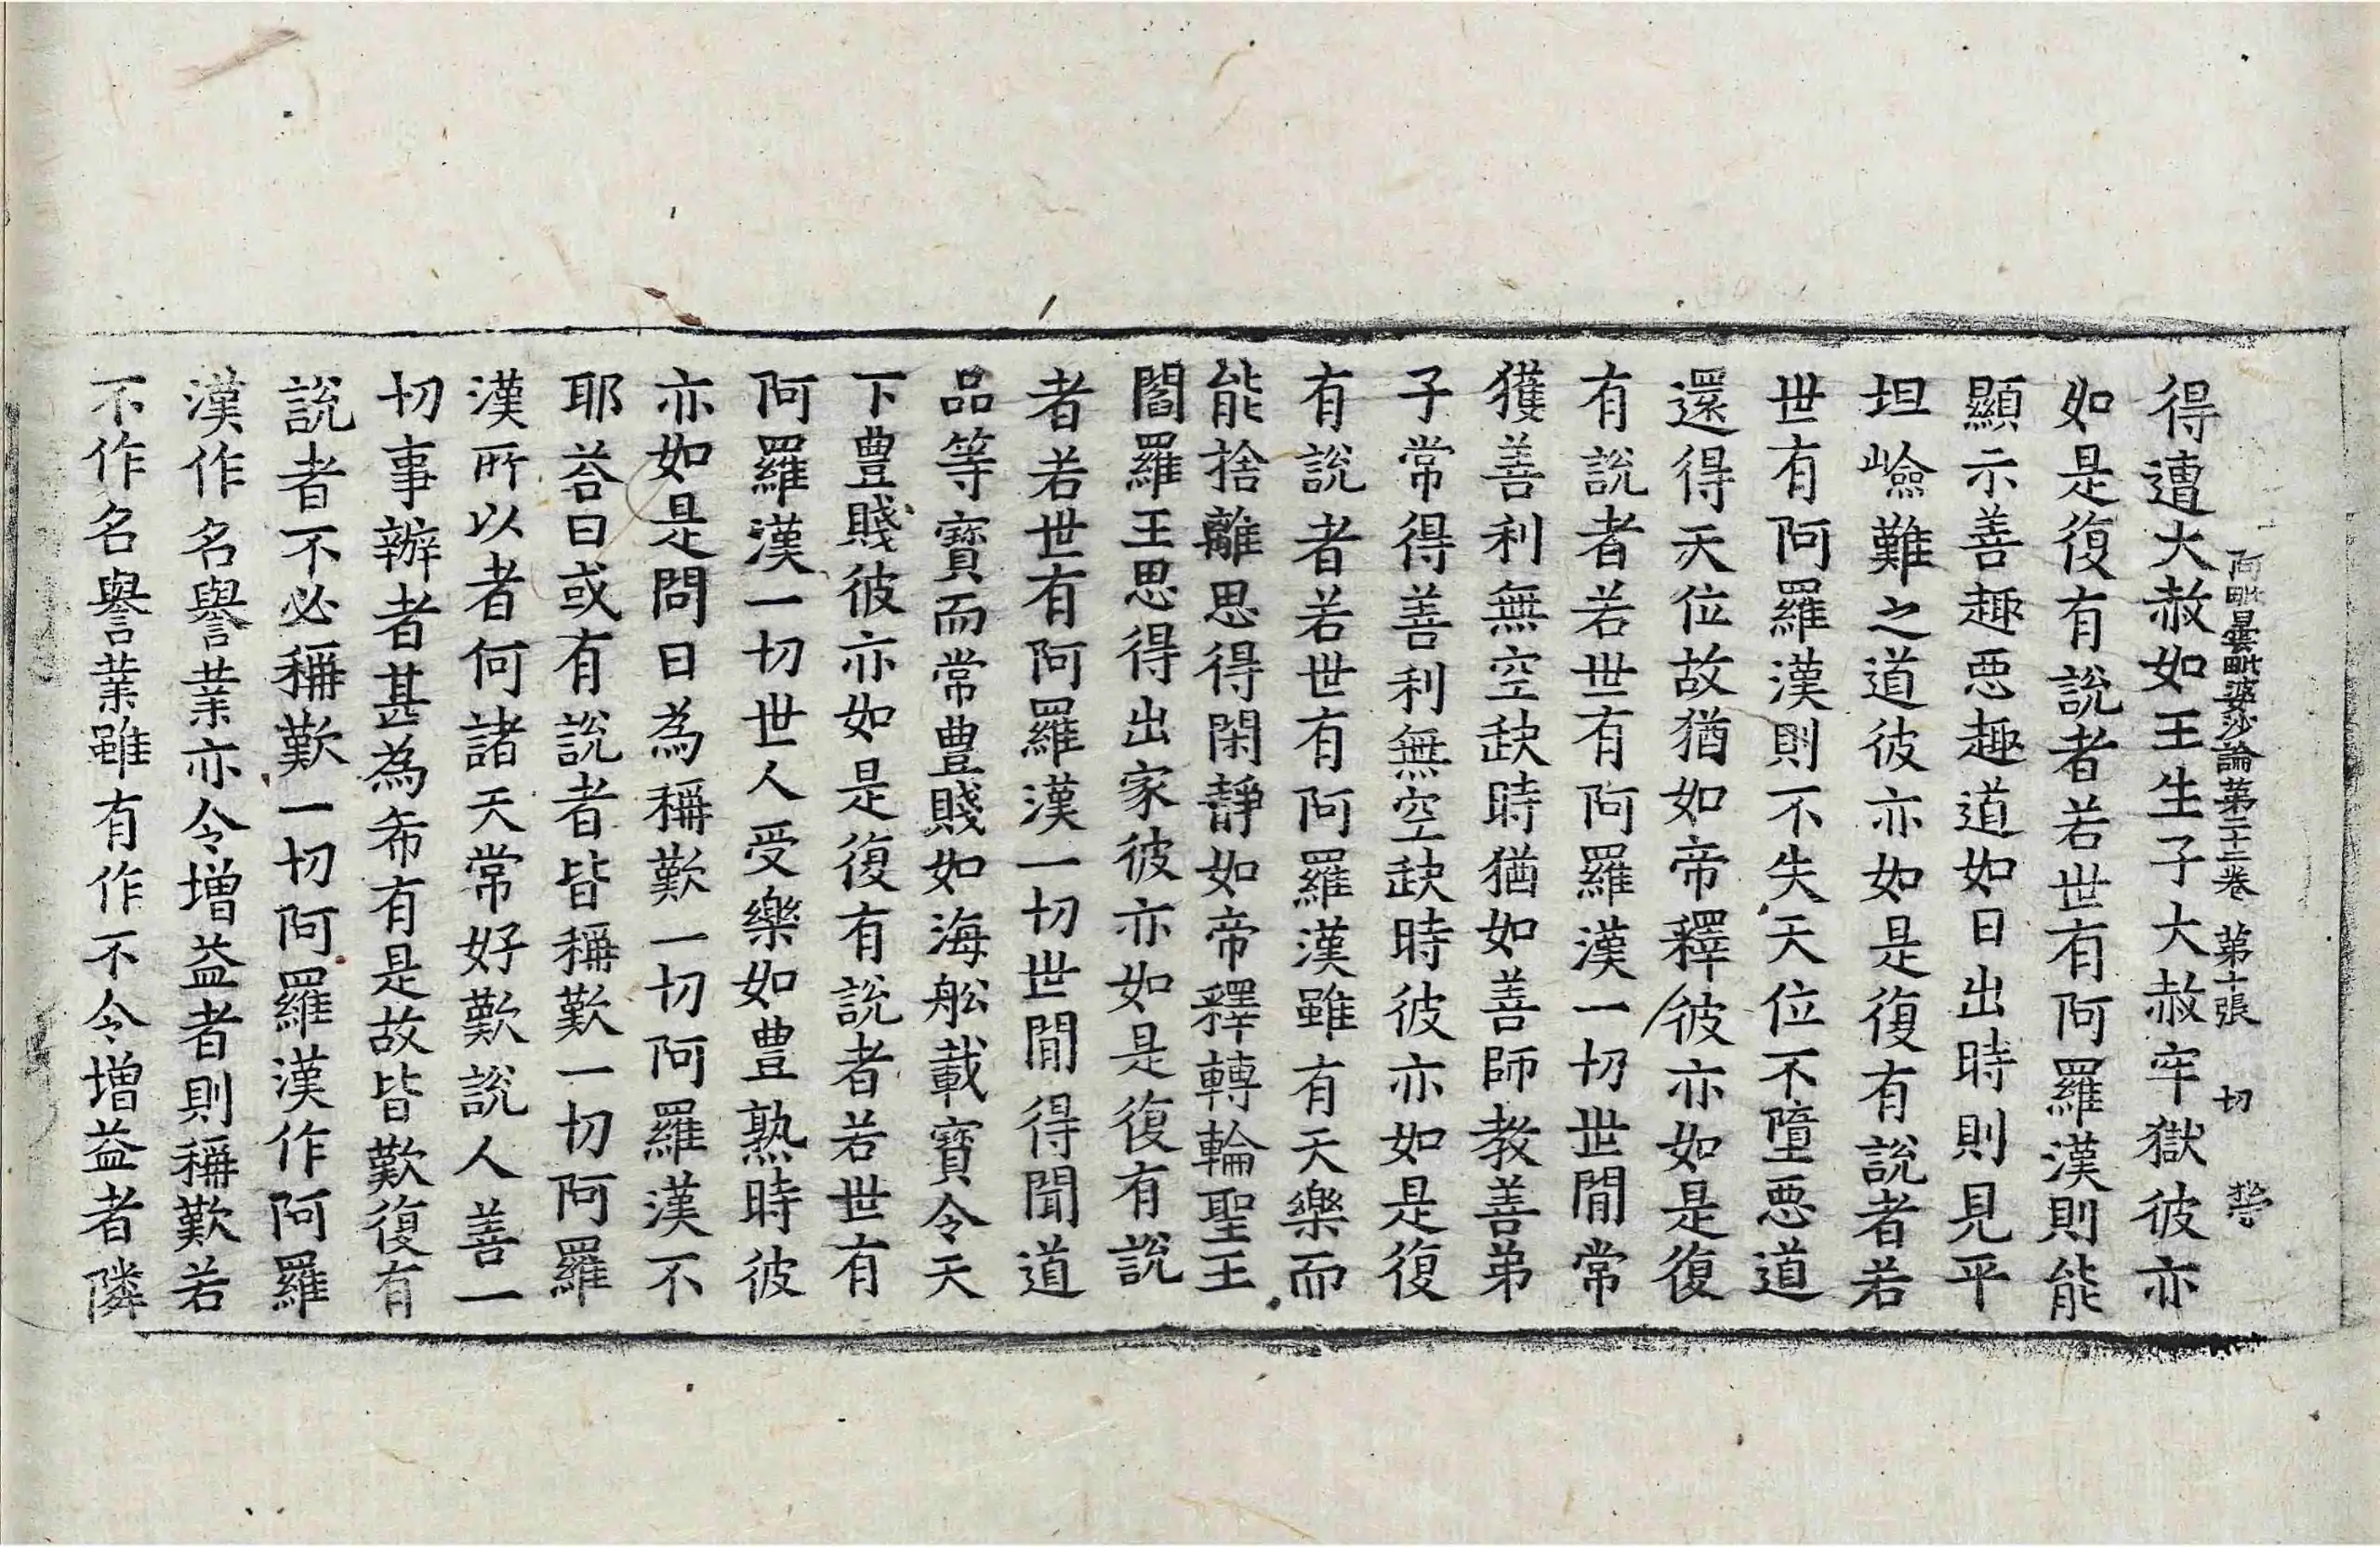 阿毗曇毗婆沙論第三十二卷 第十張 切
得遭大赦如王生子大赦牢獄彼亦
如是復有說者若世有阿羅漢則能
顯示善趣惡趣道如日出時則見平
坦嶮難之道彼亦如是復有說者若
世有阿羅漢則不失天位不墮惡道
還得天位故猶如帝釋彼亦如是復
有說者若世有阿羅漢一切世間常
獲善利無空缺時猶如善師教善弟
子常得善利無空缺時彼亦如是復
有說者若世有阿羅漢雖有天樂而
能捨離思得閑靜如帝釋轉輪聖王
閻羅王思得出家彼亦如是復有說
者若世有阿羅漢一切世間得聞道
品等寶而常豊賤如海舩載寶令天
下豊賤彼亦如是復有說者若世有
阿羅漢一切世人受樂如豊熟時彼
亦如是問曰為稱歎一切阿羅漢不
耶荅曰或有說者皆稱歎一切阿羅
漢所以者何諸天常好歎說人善一
切事辦者甚為希有是故皆歎復有
說者不必稱歎一切阿羅漢作阿羅
漢作名譽業亦令增益者則稱歎若
不作名譽業雖有作不令增益者隣